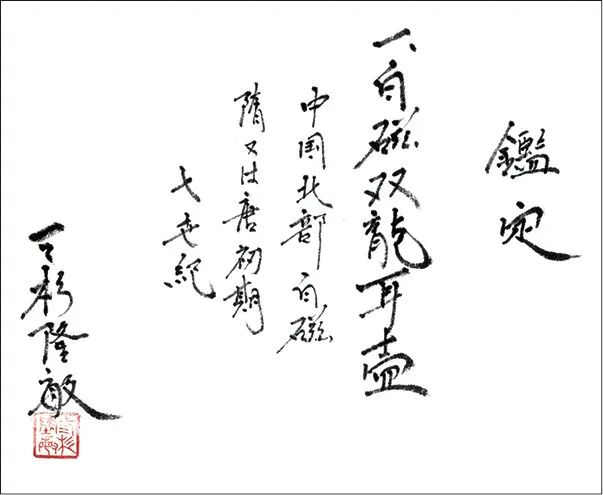 鑑定
一、白磁双龍耳壷
中国北部白磁
隋又は唐初期
七世紀
三杉隆敏